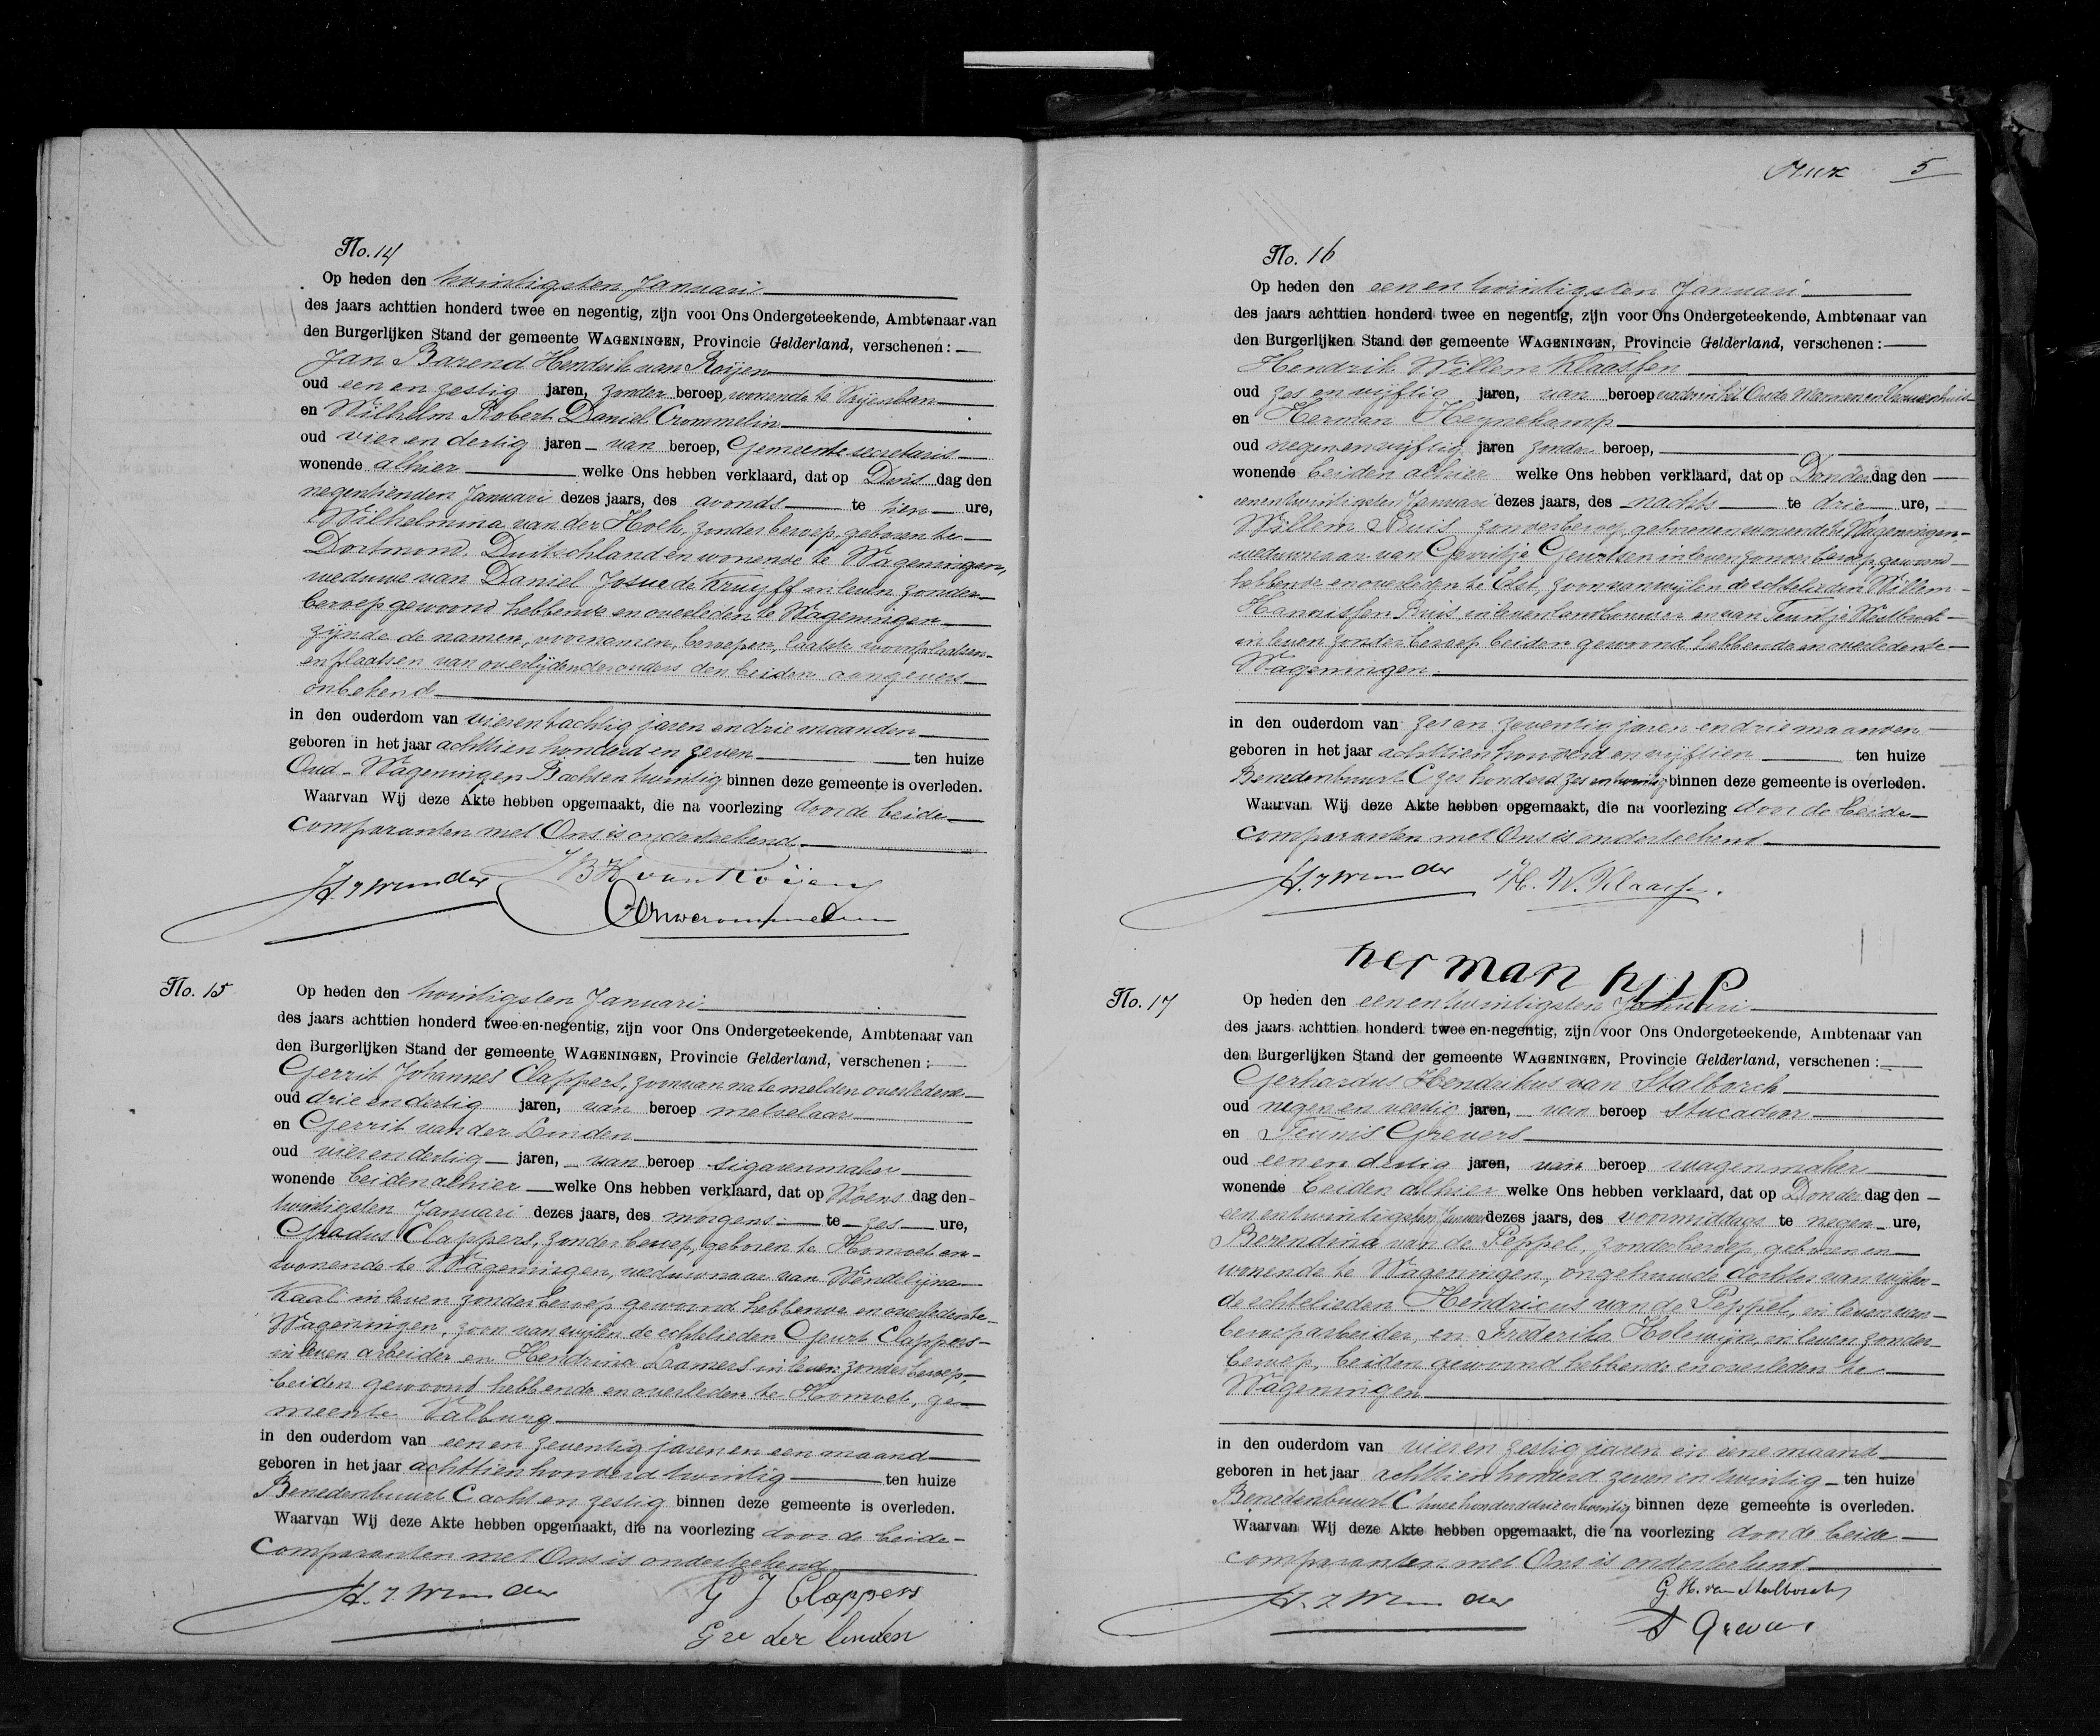 No. 14
Op heden den twintigsten Januari
des jaars achttien honderd twee en negentig, zijn voor Ons Ondergeteekende, Ambtenaar van
den Burgerlijken Stand der gemeente WAGENINGEN, Provincie Gelderland, verschenen:
Jan Barend Hendrik van Roijen
oud een en zestig jaren, zonder beroep, wonende te
en Wilhelm Robert Daniel Crommelin
oud vier en dertig jaren van beroep, Gemeentesecretaris
wonende alhier welke Ons hebben verklaard, dat op Dins dag den
negentienden Januari dezes jaars, des avonds te tien ure,
Wilhelmina van der Hoek, zonder beroep, geboren te
Dortmond, Duitschland en wonende te Wageningen,
weduwe van Daniel Josue de Kruyff in leven zonder
beroep gewoond hebbende en overleden te Wageningen
zijnde de namen, voornamen, beroepen, laatste woonplaatsen
en plaatsen van overlijden der ouders den beiden aangevers
onbekend
in den ouderdom van vierentachtig jaren en drie maanden
geboren in het jaar achttien honderd en zeven ten huize
Oud-Wageningen B achtentwintig binnen deze gemeente is overleden.
Waarvan Wij deze Akte hebben opgemaakt, die na voorlezing door de beide
comparanten met Ons is onderteekend
JBH van Roijen
No. 15
Op heden den twintigsten Januari
des jaars achttien honderd twee-en-negentig, zijn voor Ons Ondergeteekende, Ambtenaar van
den Burgerlijken Stand der gemeente WAGENINGEN, Provincie Gelderland, verschenen:
Gerrit Johannes Clappers, zoon van na te melden overledene
oud drie en dertig jaren, van beroep metselaar
en Gerrit van der Linden
oud vier en dertig jaren, van beroep sigarenmaker
wonende beiden alhier welke Ons hebben verklaard, dat op Woens dag den
twintigsten Januari dezes jaars, des morgens te zes ure,
Gradus Clappers, zonder beroep, geboren te Homoet en
wonende te Wageningen, weduwnaar van Wendelijna
Kaal in leven zonder beroep gewoond hebbende en overleden te
Wageningen, zoon van wijlen de echtelieden Geurt Clappers
in leven arbeider en Hendrina Lamers in leven zonder beroep,
beiden gewoond hebbende en overleden te Homoet, ge-
meente Valburg
in den ouderdom van een en zeventig jaren en een maand
geboren in het jaar achttien honderd twintig ten huize
Benedenbuurt C acht en zestig binnen deze gemeente is overleden.
Waarvan Wij deze Akte hebben opgemaakt, die na voorlezing door de beide
comparanten met Ons is onderteekend
G J Clappers
G v der linden
5
No. 16
Op heden den een en twintigsten Januari
des jaars achttien honderd twee en negentig, zijn voor Ons Ondergeteekende, Ambtenaar van
den Burgerlijken Stand der gemeente WAGENINGEN, Provincie Gelderland, verschenen:
Hendrik Willem Klaassen
oud zes en vijftig jaren, van beroep vader in het Oude Mannen en Vrouwenhuis
en Herman Heynekamp
oud negen en vijftig jaren zonder beroep,
wonende beiden alhier welke Ons hebben verklaard, dat op Donder dag den
eenentwintigsten Januari dezes jaars, des nachts te drie ure,
Willem Buis zonder beroep, geboren en wonende te Wageningen,
weduwnaar van Gerritje Geurtsen in leven zonder beroep, gewoond
hebbende en overleden te Elst, zoon van wijlen de echtelieden Willem
Hannissen Buis in leven landbouwer en van Teuntje Westbroek
in leven zonder beroep beiden gewoond hebbende en overleden te
Wageningen.
in den ouderdom van zes en zeventig jaren en drie maanden
geboren in het jaar achttien honderd en vijftien ten huize
Benedenbuurt C zes honderd zes en twintig binnen deze gemeente is overleden.
Waarvan Wij deze Akte hebben opgemaakt, die na voorlezing door de beide
comparanten met Ons is onderteekend
H. W. Klaassen.
herman
No. 17
Op heden den een en twintigsten Januari
des jaars achttien honderd twee en-negentig, zijn voor Ons Ondergeteekende, Ambtenaar van
den Burgerlijken Stand der gemeente WAGENINGEN, Provincie Gelderland, verschenen:
Gerhardus Hendrikus van Stalborch
oud negen en veertig jaren, van beroep stucadoor
en Teunis Grevers
oud een en dertig jaren, van beroep wagenmaker
wonende beiden alhier welke Ons hebben verklaard, dat op Donder dag den
een en twintigsten Januari dezes jaars, des voormiddags te negen ure,
Berendina van de Peppel, zonder beroep, geboren en
wonende te Wageningen, ongehuwde dochter van wijlen
de echtelieden Hendricus van de Peppel, in leven van
beroep arbeider, en Frederika Holewijn, in leven zonder
beroep, beiden gewoond hebbende en overleden te
Wageningen
in den ouderdom van vier en zestig jaren en eene maand
geboren in het jaar achttien honderd zeven en twintig ten huize
Benedenbuurt C twee honderd drie en twintig binnen deze gemeente is overleden.
Waarvan Wij deze Akte hebben opgemaakt, die na voorlezing door de beide
comparanten met Ons is onderteekend
G. H. van Stalborch